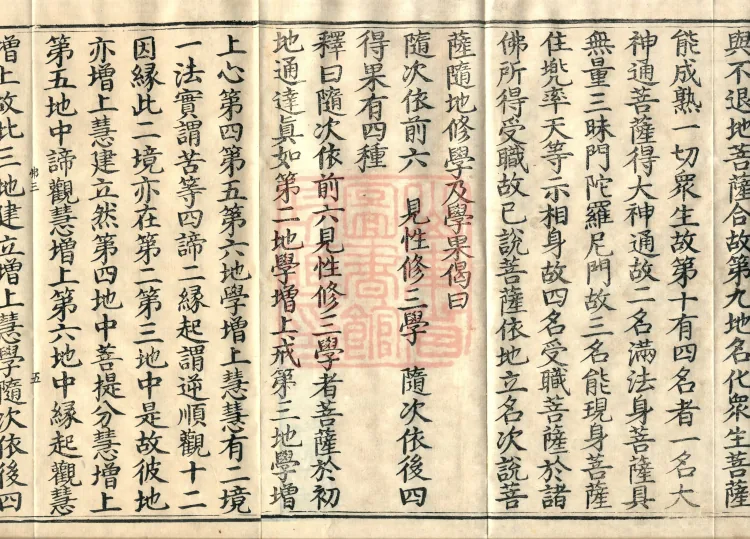 與不退地菩薩合故第九地名化衆生菩薩
能成熟一切衆生故第十有四名者一名大
神通菩薩得大神通故二名滿法身菩薩具
無量三昧門陀羅尼門故三名能現身菩薩
住兜率天等示相身故四名受職菩薩於諸
佛所得受職故已說菩薩依地立名次說菩
薩隨地修學及學果偈曰
隨次依前六　見性修三學　隨次依後四
得果有四種
釋曰隨次依前六見性修三學者菩薩於初
地通達眞如第二地學增上戒第三地學增
上心第四第五第六地學增上慧慧有二境
一法實謂苦等四諦二緣起謂逆順觀十二
因緣此二境亦在第二第三地中是故彼地
亦增上慧建立然第四地中菩提分慧增上
第五地中諦觀慧增上第六地中緣起觀慧
增上故此三地建立增上慧學隨次依後四
五